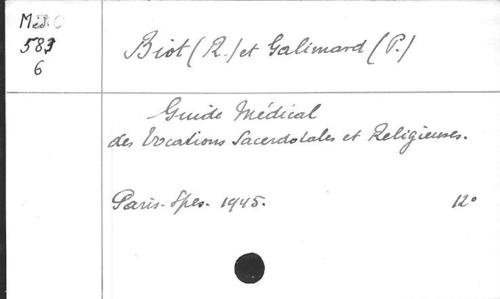 Med. C
583
6
Biot (R.) et Galimard (P.)
Guide Médical
des Vocations Sacerdotales et Religieuses.
Paris - Spes - 1945.
12°